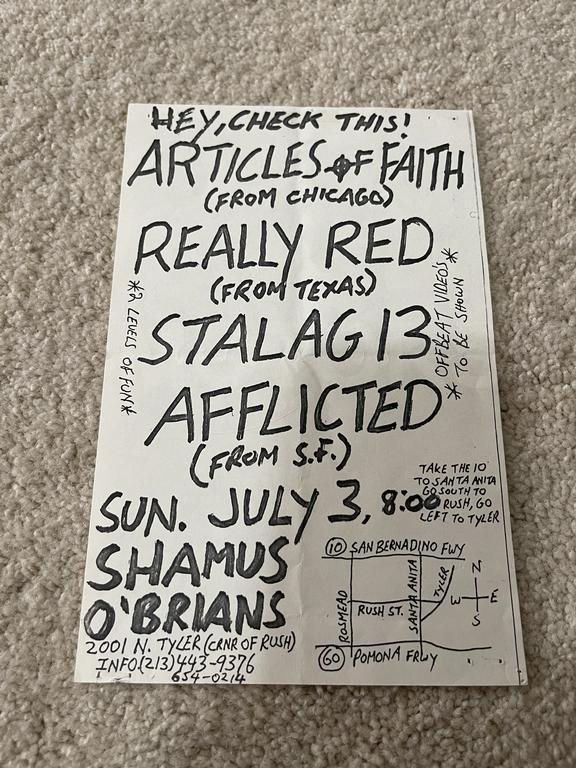 HEY, CHECK THIS!
ARTICLES OF FAITH
(FROM CHICAGO)
REALLY RED
(FROM TEXAS)
*2 LEVELS OF FUN*
* OFFBEAT VIDEO'S *
* TO BE SHOWN
STALAG 13
AFFLICTED
(FROM S.F.)
TAKE THE 10
TO SANTA ANITA
GO SOUTH TO
RUSH, GO
LEFT TO TYLER
SUN. JULY 3, 8:00
SHAMUS
O'BRIANS
2001 N. TYLER (CRNR OF RUSH)
INFO (213) 443-9376
654-0214
10 SAN BERNADINO FWY
ROSMEAD
RUSH ST.
SANTA ANITA
TYLER
N
W E
S
60 POMONA FRWY